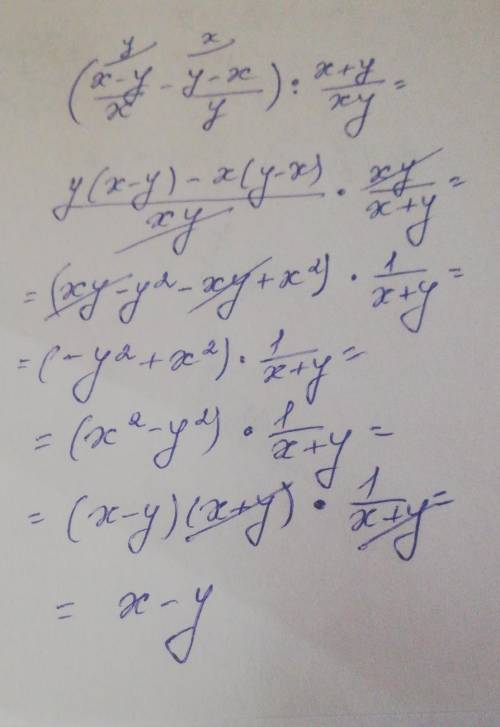 (y/ (x-y)/x - x/ (y-x)/y) : (x+y)/(xy) =
(y(x-y) - x(y-x))/(xy) · (xy)/(x+y) =
= (xy - y² - xy + x²) · 1/(x+y) =
= (-y² + x²) · 1/(x+y) =
= (x² - y²) · 1/(x+y) =
= (x-y)(x+y) · 1/(x+y) =
= x - y